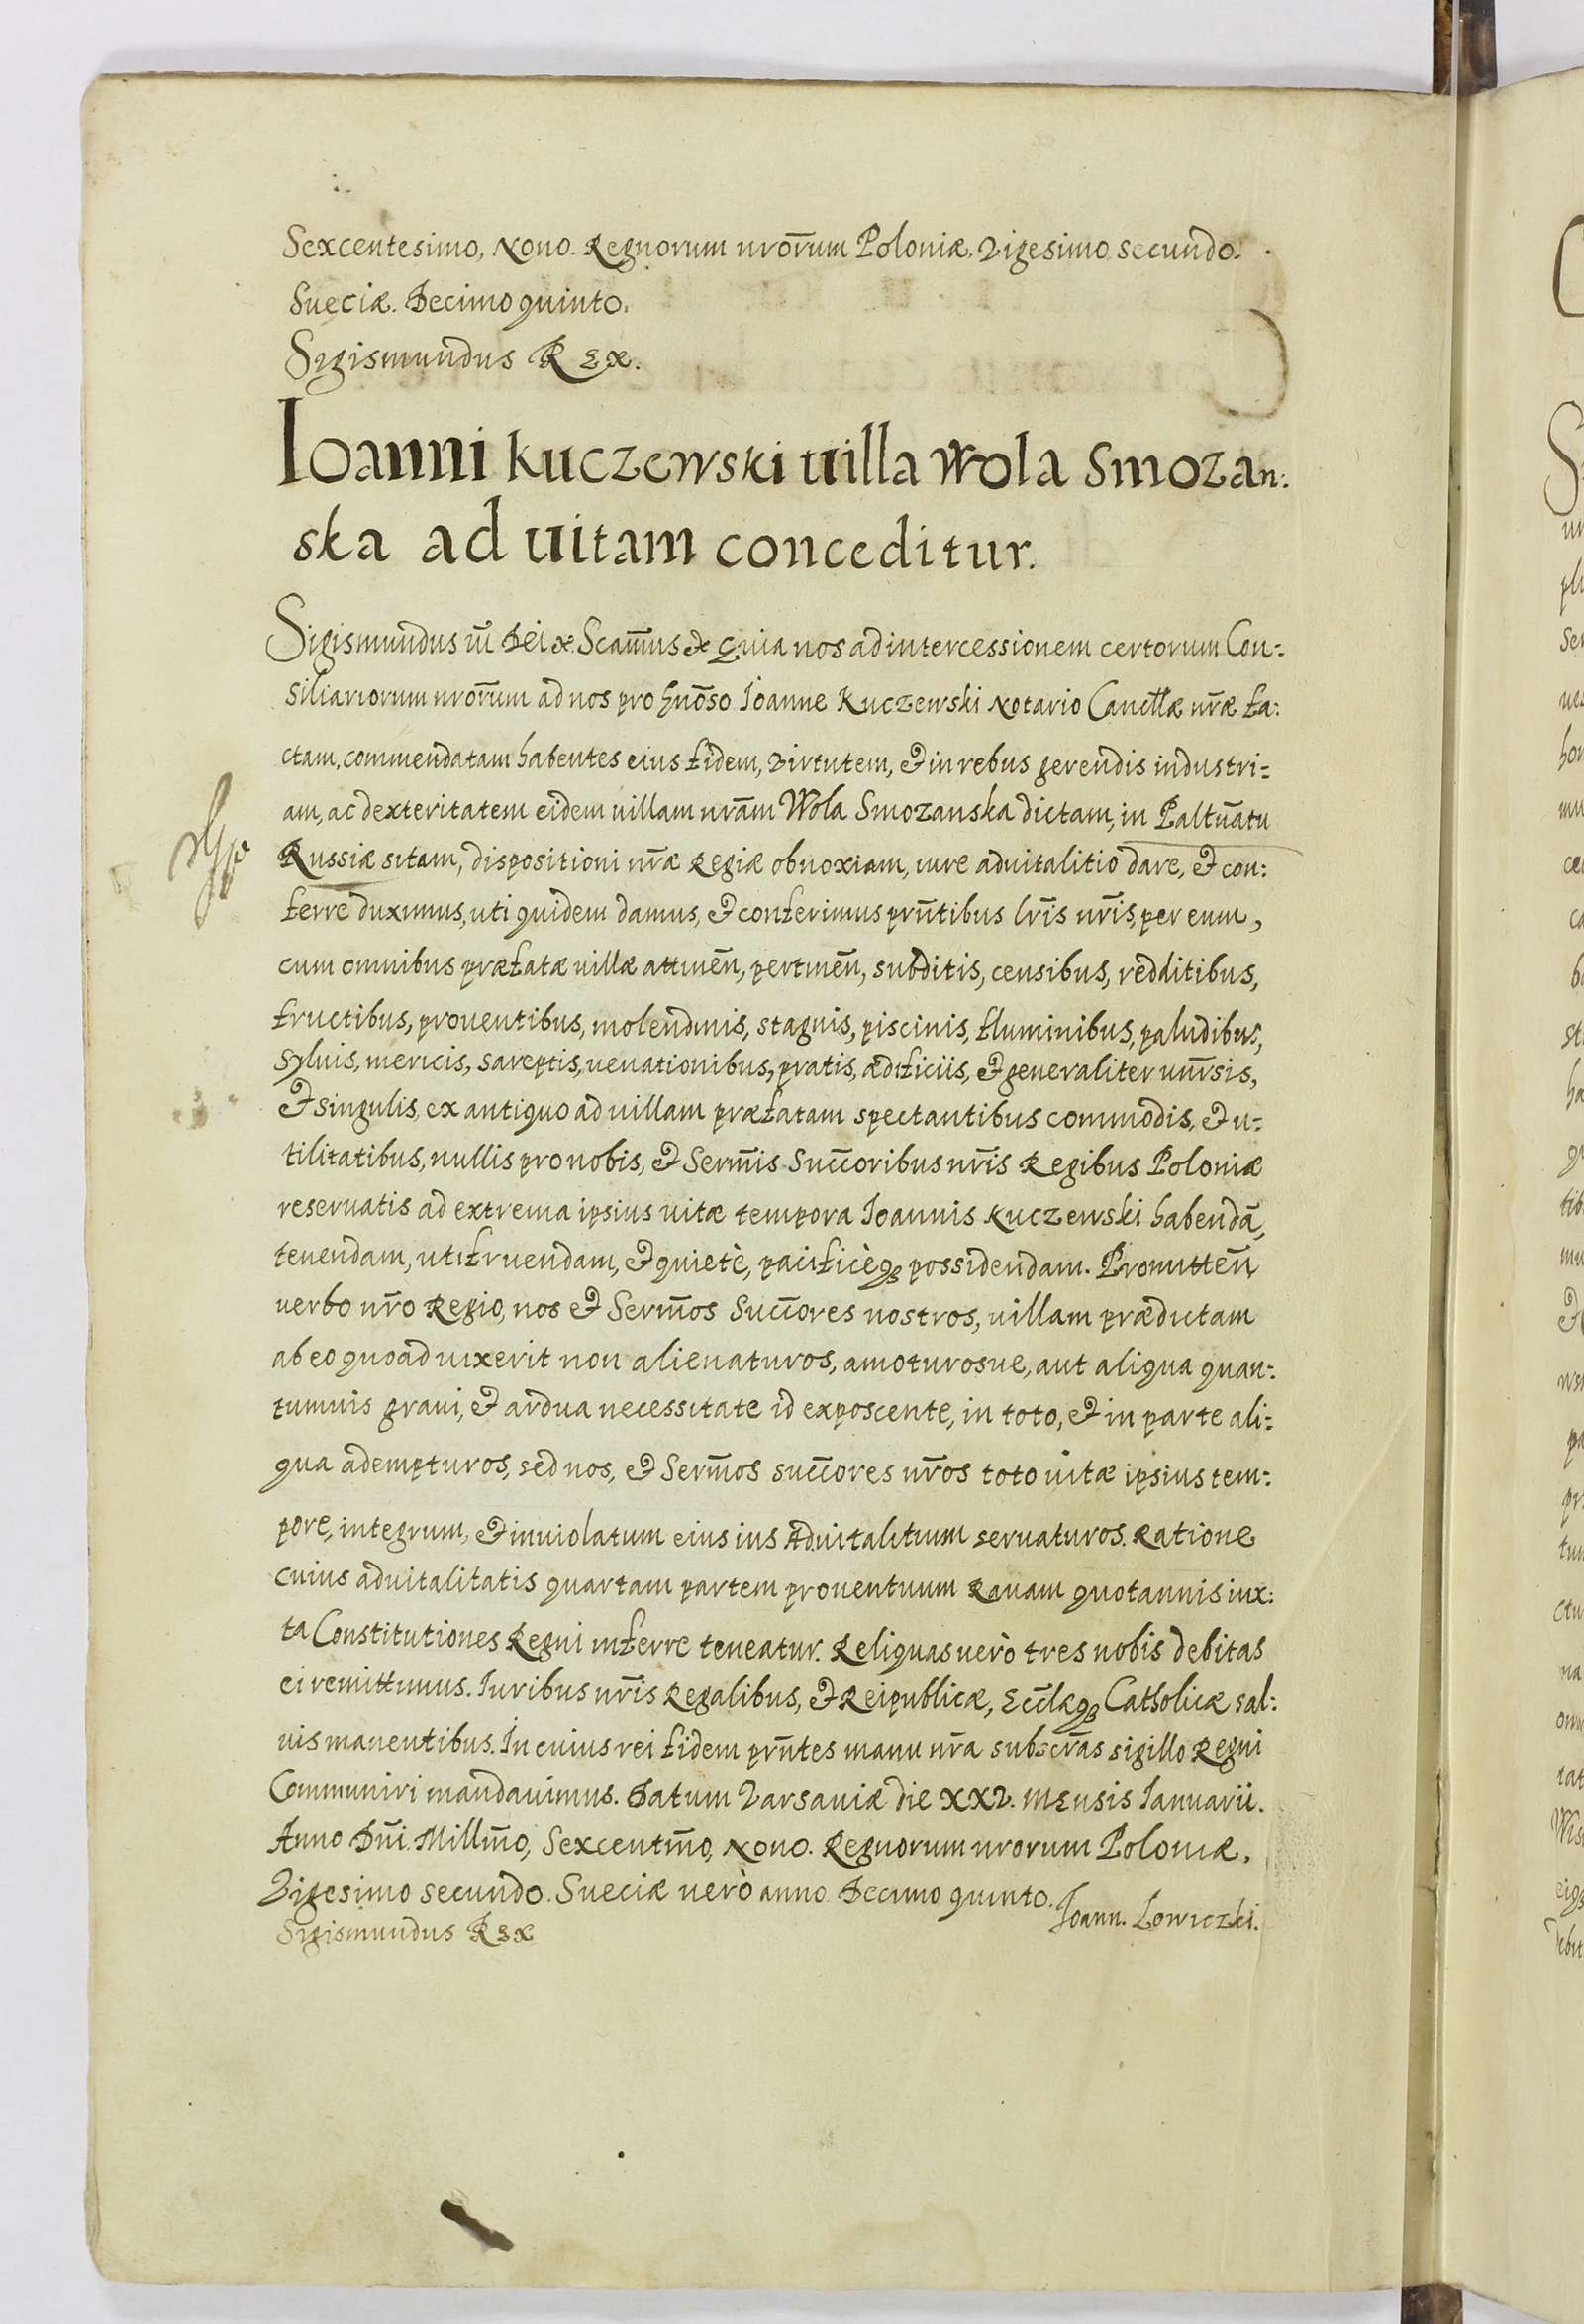 Sexcentesimo, Nono. Regnorum nrōrum Poloniæ. Vigesimo secundo.
Sueciæ. Decimo quinto.
Sigismundus REx.
Ioanni Kuczewski uilla Wola Smozan:
ska ad uitam conceditur.
Sigismundus iii Dei &. Scam̄us & Quia nos ad intercessionem certorum Con:
siliariorum nrōrum ad nos pro Gnōso Ioanne Kuczewski Notario Cancllæ nr̄æ fa:
ctam, commendatam habentes eius fidem, Virtutem, & in rebus gerendis industri:
am, ac dexteritatem eidem uillam nrām Wola Smozanska dictam, in Paltn̄atu
Russiæ sitam, dispositioni nr̄æ Regiæ obnoxiam, iure aduitalitio dare, & con:
ferre duximus, uti quidem damus, & conferimus prn̄tibus lr̄is nr̄is, per eum,
cum omnibus præfatæ uillæ attinēn, pertinēn, subditis, censibus, redditibus,
fructibus, prouentibus, molendinis, stagnis, piscinis, fluminibus, paludibus,
syluis, mericis, sareptis, uenationibus, pratis, ædificiis, & generaliter unr̄sis,
& singulis, ex antiquo ad uillam præfatam spectantibus commodis, & u:
tilitatibus, nullis pro nobis, & Serm̄is Succ̄oribus nr̄is Regibus Poloniæ
reseruatis ad extrema ipsius uitæ tempora Ioannis Kuczewski habendā,
tenendam, utifruendam, & quietè, pacificèq; possidendam. Promittēn
uerbo nr̄o Regio, nos & Serm̄os Succ̄ores nostros, uillam prædictam
ab eo quoad uixerit non alienaturos, amoturosue, aut aliqua quan:
tumuis graui, & ardua necessitate id exposcente, in toto, & in parte ali:
qua adempturos, sed nos, & Serm̄os succ̄ores nr̄os toto uitæ ipsius tem:
pore, integrum, & inuiolatum eius ius Aduitalitium seruaturos. Ratione
cuius aduitalitatis quartam partem prouentuum Rauam quotannis iux:
ta Constitutiones Regni inferre teneatur. Reliquas uerò tres nobis debitas
ei remittimus. Iuribus nr̄is Regalibus, & Reipublicæ, Eccl̄æq; Catholicæ sal:
uis manentibus. In cuius rei fidem prn̄tes manu nr̄a subscr̄as sigillo Regni
Communiri mandauimus. Datum Varsauiæ die XXV. MEnsis Ianuarii.
Anno Dn̄i. Millm̄o, Sexcentm̄o, Nono. Regnorum nrorum Poloniæ.
Vigesimo secundo. Sueciæ uerò anno Decimo quinto.
Ioann. Lowiczki.
Sigismundus REx